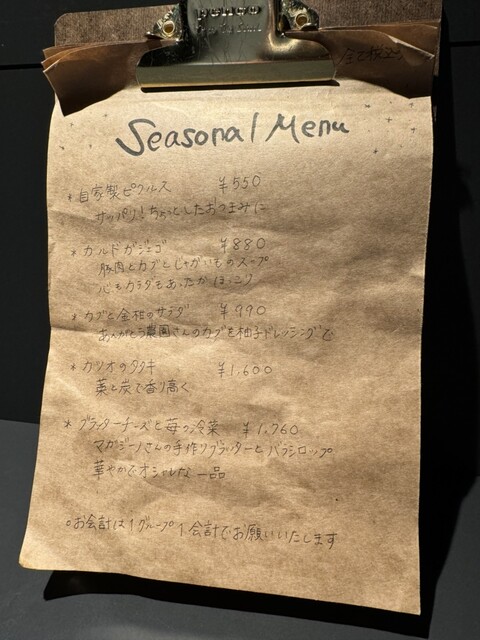 PENCO
全て税込
Seasonal Menu
* 自家製ピクルス ¥550
サッパリ！ちょっとしたおつまみに
* カルドガジェゴ ¥880
豚肉とカブとじゃがいものスープ
心もカラダもあったかほっこり
* カブと金柑のサラダ ¥990
ありがとう農園さんのカブを柚子ドレッシングで
* カツオのタタキ ¥1,600
藁と炭で香り高く
* ブラッターチーズと苺の冷菜 ¥1,760
マガジーノさんの手作りブラッターとバラシロップ
華やかでオシャレな一品
○お会計は1グループ1会計でお願いいたします